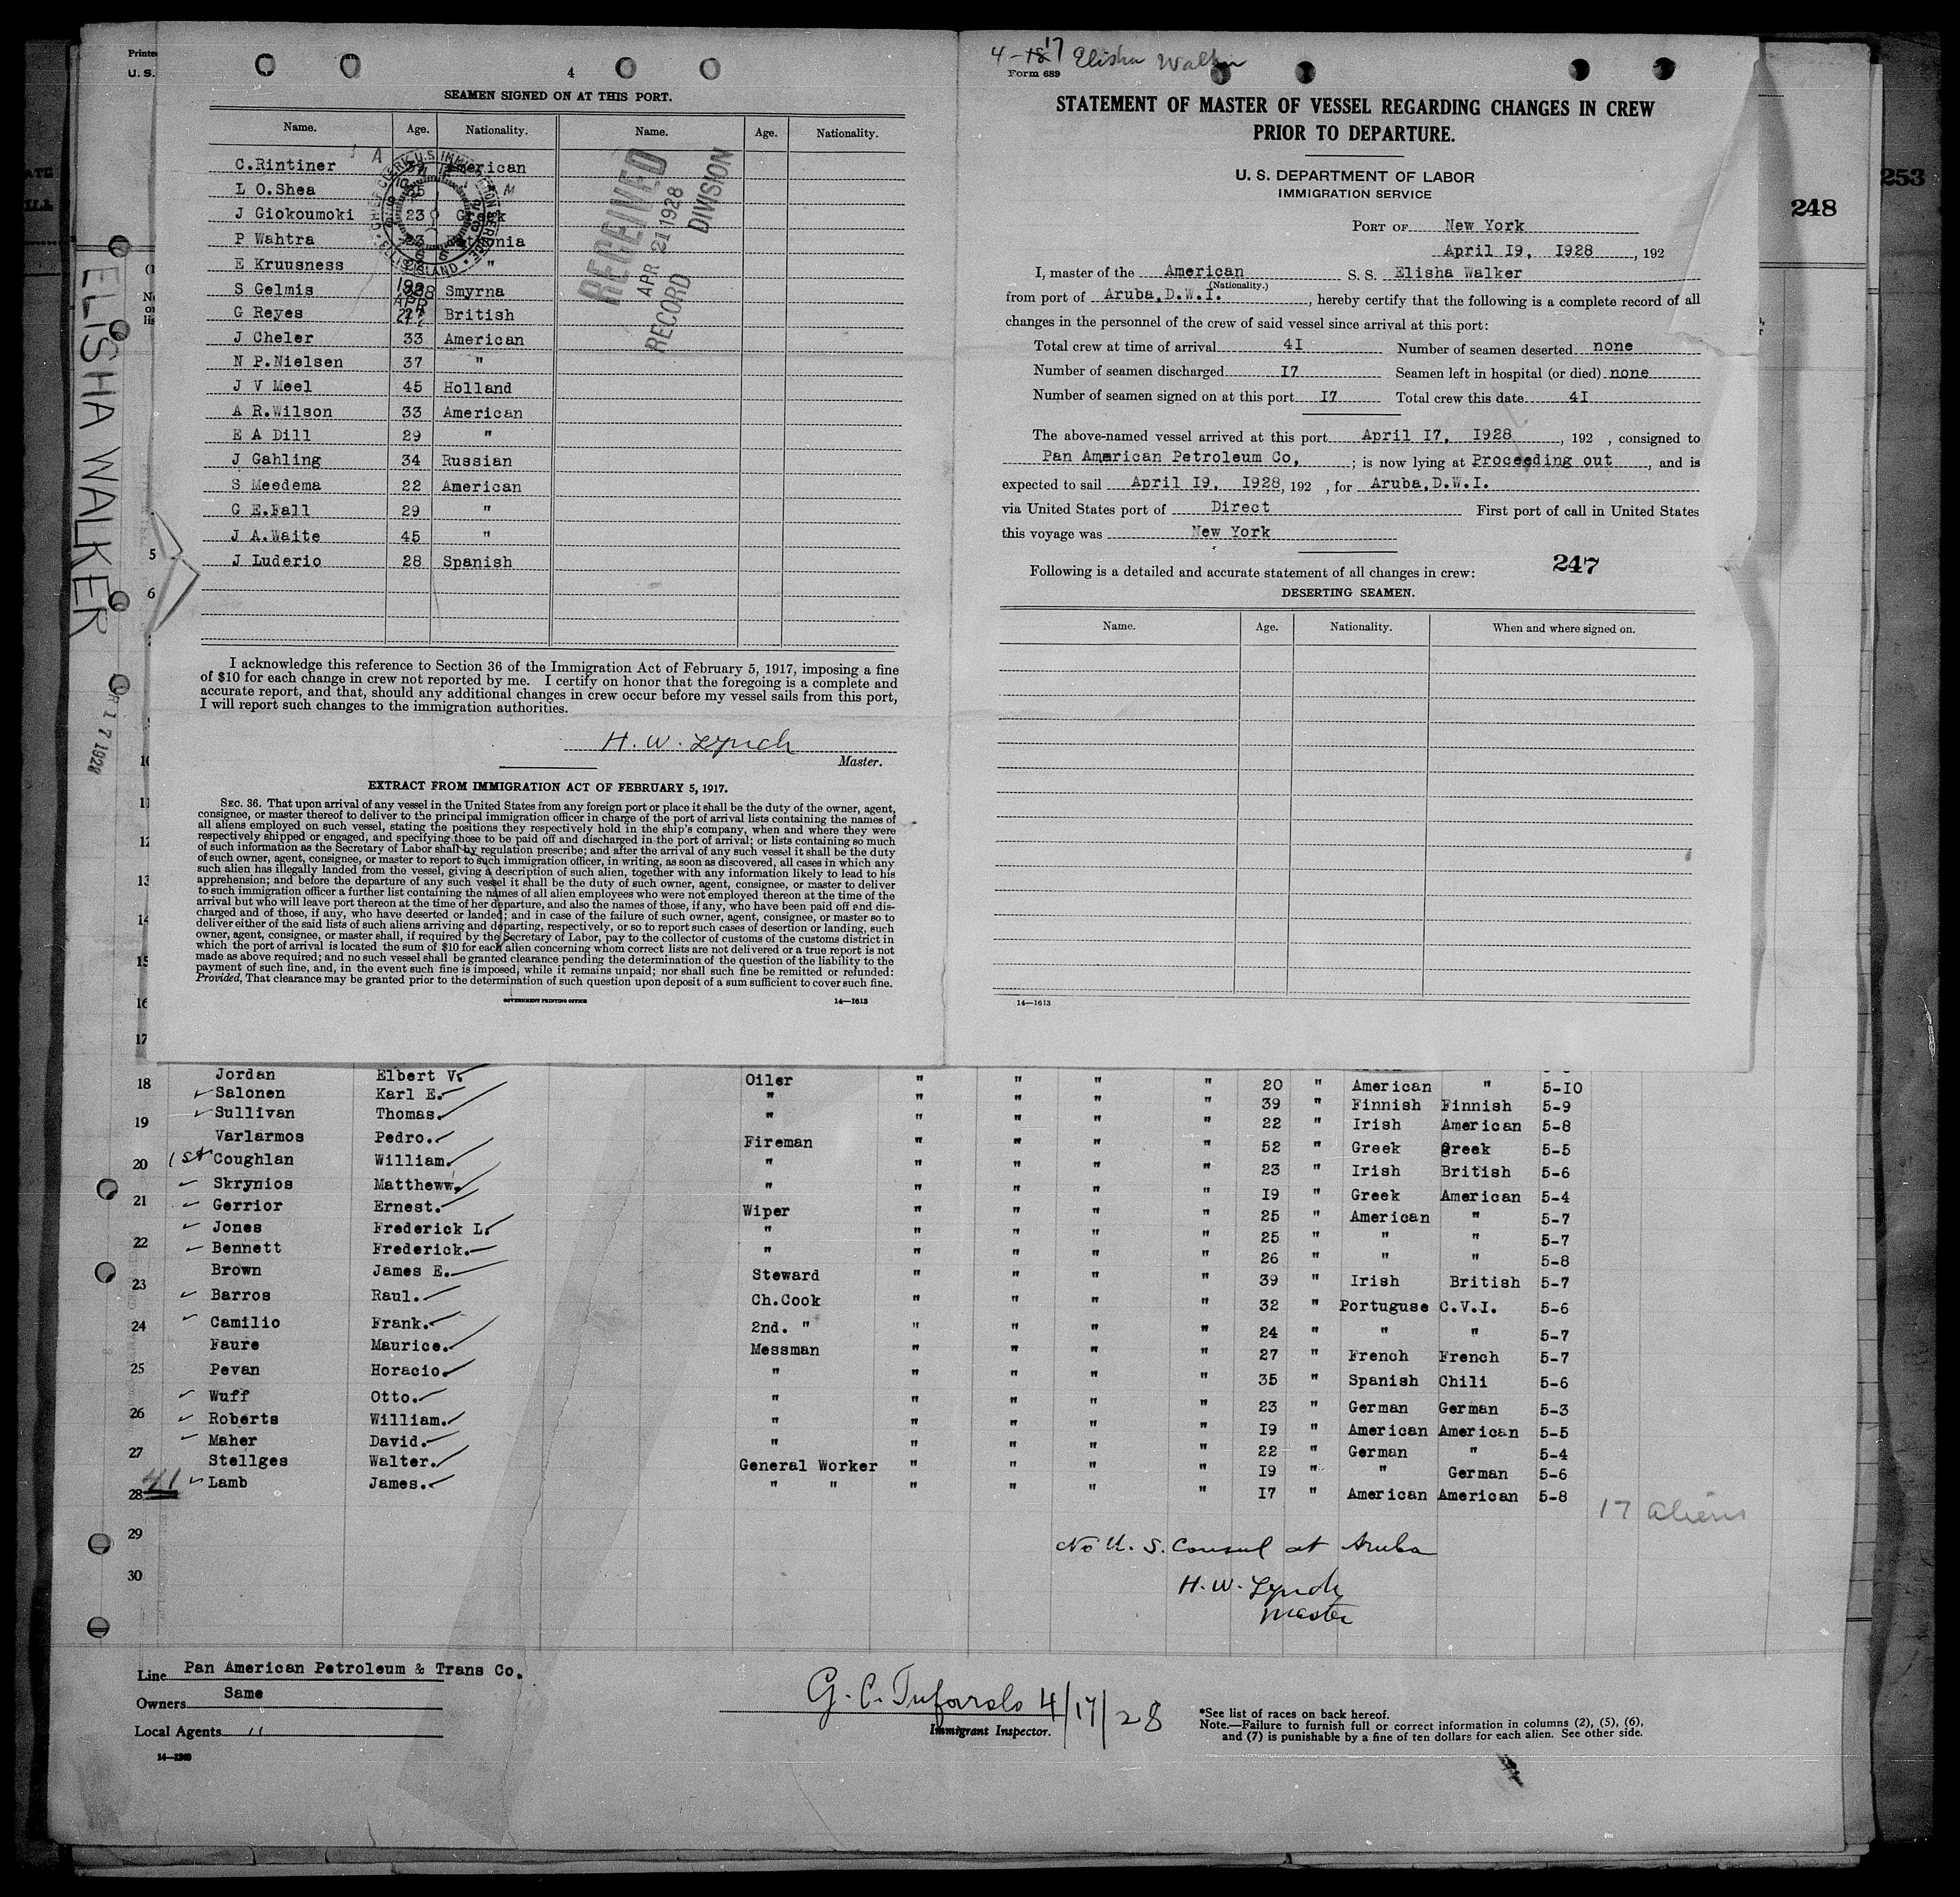 Printe
U. S.
4
SEAMEN SIGNED ON AT THIS PORT.
Name. Age. Nationality. Name. Age. Nationality.
C.Rintiner American
L O.Shea "
J Giokoumoki 23 Greek
P Wahtra 23
E Kruusness "
S Gelmis Smyrna
G Reyes British
J Cheler 33 American
N P.Nielsen 37 "
J V Meel 45 Holland
A R.Wilson 33 American
E A Dill 29 "
J Gahling 34 Russian
S Meedema 22 American
G E.Fall 29 "
J A.Waite 45 "
J Luderio 28 Spanish
RECEIVED
APR 21 1928
RECORD DIVISION
I acknowledge this reference to Section 36 of the Immigration Act of February 5, 1917, imposing a fine
of $10 for each change in crew not reported by me. I certify on honor that the foregoing is a complete and
accurate report, and that, should any additional changes in crew occur before my vessel sails from this port,
I will report such changes to the immigration authorities.
H. W. Lynch
Master.
EXTRACT FROM IMMIGRATION ACT OF FEBRUARY 5, 1917.
SEC. 36. That upon arrival of any vessel in the United States from any foreign port or place it shall be the duty of the owner, agent,
consignee, or master thereof to deliver to the principal immigration officer in charge of the port of arrival lists containing the names of
all aliens employed on such vessel, stating the positions they respectively hold in the ship's company, when and where they were
respectively shipped or engaged, and specifying those to be paid off and discharged in the port of arrival; or lists containing so much
of such information as the Secretary of Labor shall by regulation prescribe; and after the arrival of any such vessel it shall be the duty
of such owner, agent, consignee, or master to report to such immigration officer, in writing, as soon as discovered, all cases in which any
such alien has illegally landed from the vessel, giving a description of such alien, together with any information likely to lead to his
apprehension; and before the departure of any such vessel it shall be the duty of such owner, agent, consignee, or master to deliver
to such immigration officer a further list containing the names of all alien employees who were not employed thereon at the time of the
arrival but who will leave port thereon at the time of her departure, and also the names of those, if any, who have been paid off and dis-
charged and of those, if any, who have deserted or landed; and in case of the failure of such owner, agent, consignee, or master so to
deliver either of the said lists of such aliens arriving and departing, respectively, or so to report such cases of desertion or landing, such
owner, agent, consignee, or master shall, if required by the Secretary of Labor, pay to the collector of customs of the customs district in
which the port of arrival is located the sum of $10 for each alien concerning whom correct lists are not delivered or a true report is not
made as above required; and no such vessel shall be granted clearance pending the determination of the question of the liability to the
payment of such fine, and, in the event such fine is imposed, while it remains unpaid; nor shall such fine be remitted or refunded:
Provided, That clearance may be granted prior to the determination of such question upon deposit of a sum sufficient to cover such fine.
GOVERNMENT PRINTING OFFICE 14—1613
4-17 Elisha Walker
Form 689
STATEMENT OF MASTER OF VESSEL REGARDING CHANGES IN CREW
PRIOR TO DEPARTURE.
U. S. DEPARTMENT OF LABOR
IMMIGRATION SERVICE
PORT OF New York
April I9, I928 , 192
I, master of the American S. S. Elisha Walker
(Nationality.)
from port of Aruba,D.W.I. , hereby certify that the following is a complete record of all
changes in the personnel of the crew of said vessel since arrival at this port:
Total crew at time of arrival 4I Number of seamen deserted none
Number of seamen discharged I7 Seamen left in hospital (or died) none
Number of seamen signed on at this port I7 Total crew this date 4I
The above-named vessel arrived at this port April I7, I928 , 192 , consigned to
Pan American Petroleum Co, ; is now lying at Proceeding out , and is
expected to sail April I9, I928, 192 , for Aruba,D.W.I.
via United States port of Direct First port of call in United States
this voyage was New York
247
Following is a detailed and accurate statement of all changes in crew:
DESERTING SEAMEN.
Name. Age. Nationality. When and where signed on.
14—1613
248
253
ELISHA WALKER
17 1928
5
6
10
11
12
13
14
15
16
17
18 Jordan Elbert V. Oiler " " " " 20 " American " 5-10
Salonen Karl E. " " " " " 39 " Finnish Finnish 5-9
19 Sullivan Thomas. " " " " " 22 " Irish American 5-8
Varlarmos Pedro. Fireman " " " " 52 " Greek Greek 5-5
20 1st Coughlan William. " " " " " 23 " Irish British 5-6
Skrynios Mattheww. " " " " " I9 " Greek American 5-4
21 Gerrior Ernest. Wiper " " " " 25 " American " 5-7
Jones Frederick L. " " " " " 25 " " " 5-7
22 Bennett Frederick. " " " " " 26 " " " 5-8
Brown James E. Steward " " " " 39 " Irish British 5-7
23 Barros Raul. Ch.Cook " " " " 32 " Portuguse C.V.I. 5-6
24 Camilio Frank. 2nd. " " " " " 24 " " " 5-7
Faure Maurice. Messman " " " " 27 " French French 5-7
25 Pevan Horacio. " " " " " 35 " Spanish Chili 5-6
Wuff Otto. " " " " " 23 " German German 5-3
26 Roberts William. " " " " " I9 " American American 5-5
Maher David. " " " " " 22 " German " 5-4
27 Stellges Walter. General Worker " " " " I9 " " German 5-6
28 41 Lamb James. " " " " " " I7 " American American 5-8
17 aliens
29
No U. S. Consul at Aruba
30
H. W. Lynch
Master
Line Pan American Petroleum & Trans Co.
Owners Same
Local Agents "
14—1240
G. C. Tufarolo 4/17/28
Immigrant Inspector.
*See list of races on back hereof.
Note.—Failure to furnish full or correct information in columns (2), (5), (6),
and (7) is punishable by a fine of ten dollars for each alien. See other side.